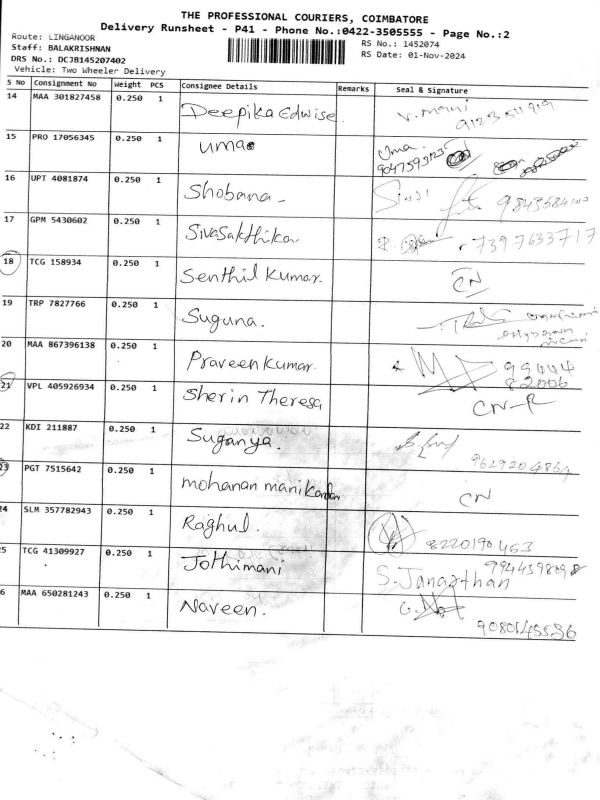 THE PROFESSIONAL COURIERS, COIMBATORE
Delivery Runsheet - P41 - Phone No.:0422-3505555 - Page No.:2
Route: LINGANOOR
RS No.: 1452074
Staff: BALAKRISHNAN
RS Date: 01-Nov-2024
DRS No.: DCJB145207402
Vehicle: Two Wheeler Delivery
S No Consignment No Weight PCS Consignee Details Remarks Seal & Signature
14 MAA 301827458 0.250 1 Deepika Edwise. V. Mani
15 PRO 17056345 0.250 1 uma Uma.
16 UPT 4081874 0.250 1 Shobana -
17 GPM 5430602 0.250 1 SivaSakthika 7397633717
18 TCG 158934 0.250 1 Senthil Kumar. CN
19 TRP 7827766 0.250 1 Suguna.
20 MAA 867396138 0.250 1 Praveen Kumar. 99444
82006
21 VPL 405926934 0.250 1 Sherin Theresa CN-R
22 KDI 211887 0.250 1 Suganya.
9629204864
23 PGT 7515642 0.250 1 mohanan manikandan CN
24 SLM 357782943 0.250 1 Raghul. 8220190453
25 TCG 41309927 0.250 1 Jothimani S. Janarthan
6 MAA 650281243 0.250 1 Naveen.
9080145536